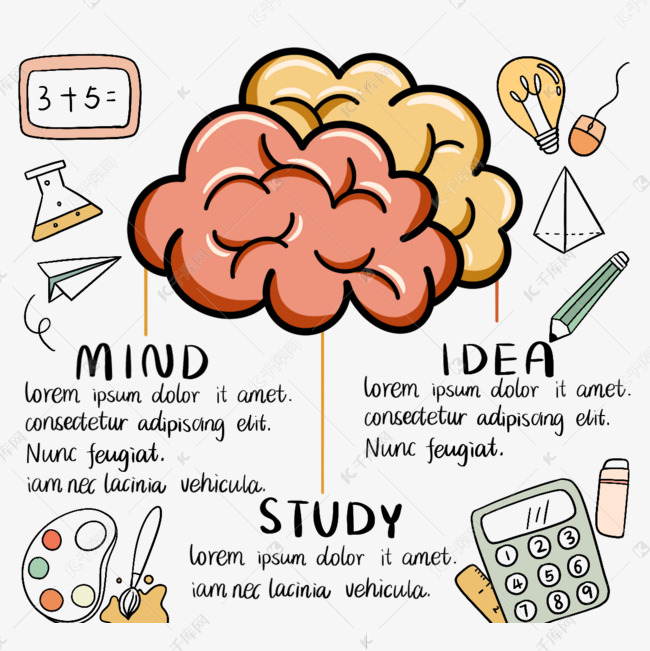 3+5=
MIND
lorem ipsum dolor it amet.
consectetur adipiscing elit.
Nunc feugiat.
iam nec lacinia vehicula.
IDEA
lorem ipsum dolor it amet.
consectetur adipiscing elit.
Nunc feugiat.
STUDY
lorem ipsum dolor it amet.
iam nec lacinia vehicula.
1 2 3
4 5 6
7 8 9
千库网